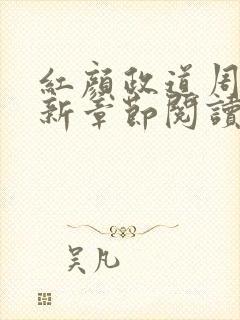 紅顏政道周
新章節閱讀
吳凡